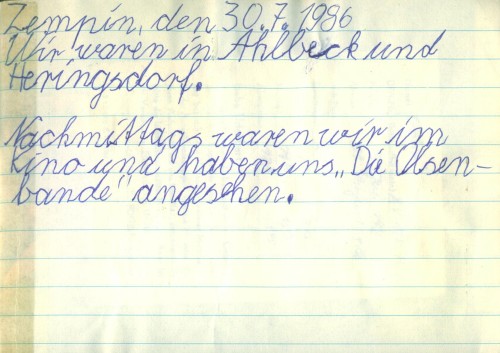 Zempin, den 30.7.1986
Wir waren in Ahlbeck und
Heringsdorf.
Nachmittags waren wir im
Kino und haben uns „Die Olsen-
bande" angesehen.